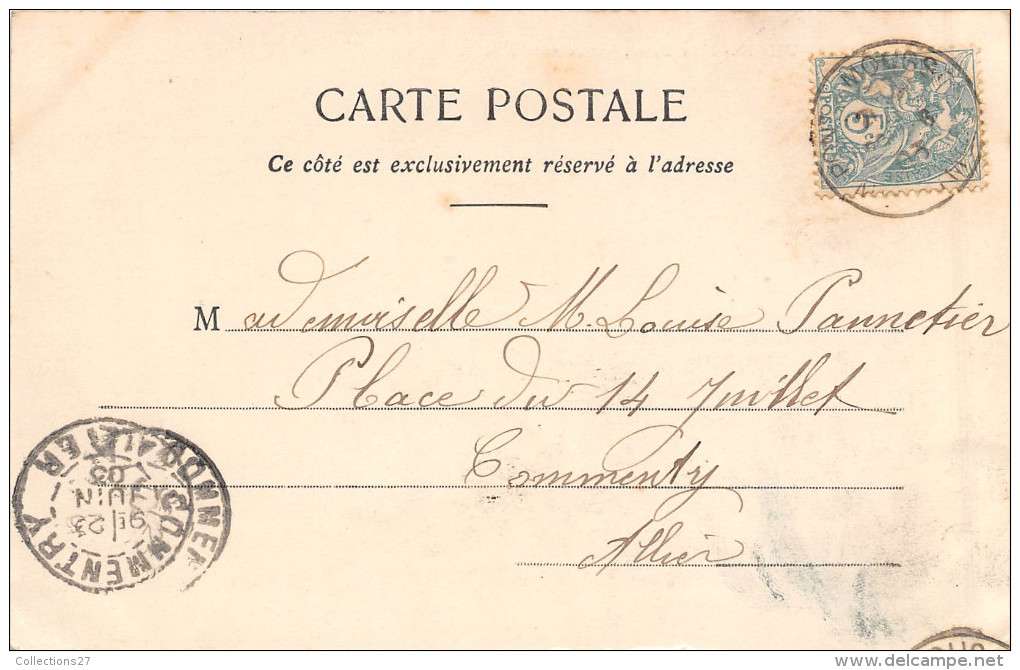 CARTE POSTALE
Ce côté est exclusivement réservé à l'adresse
5
POSTES
Mademoiselle M. Louise Pannetier
Place du 14 Juillet
Commentry
Allier
COMMENTRY
ALLIER
9E 23
JUIN
03
Collections27
www.delcampe.net